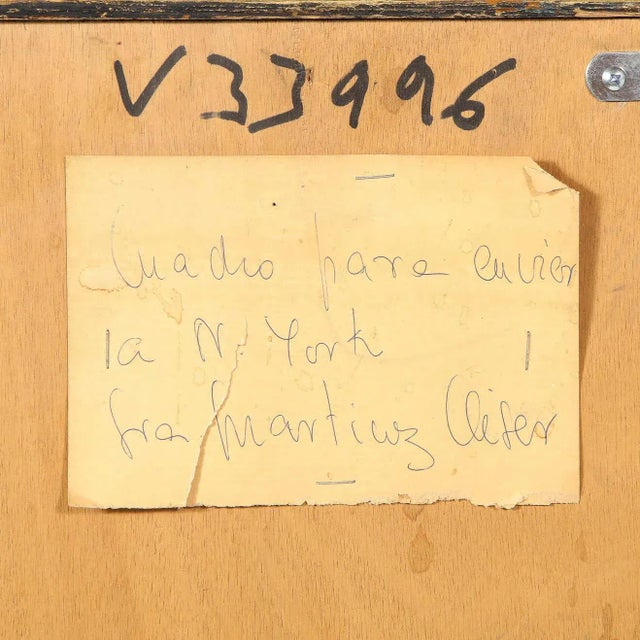 V 33996
Cuadro para enviar
a N. York
Sra Martinez